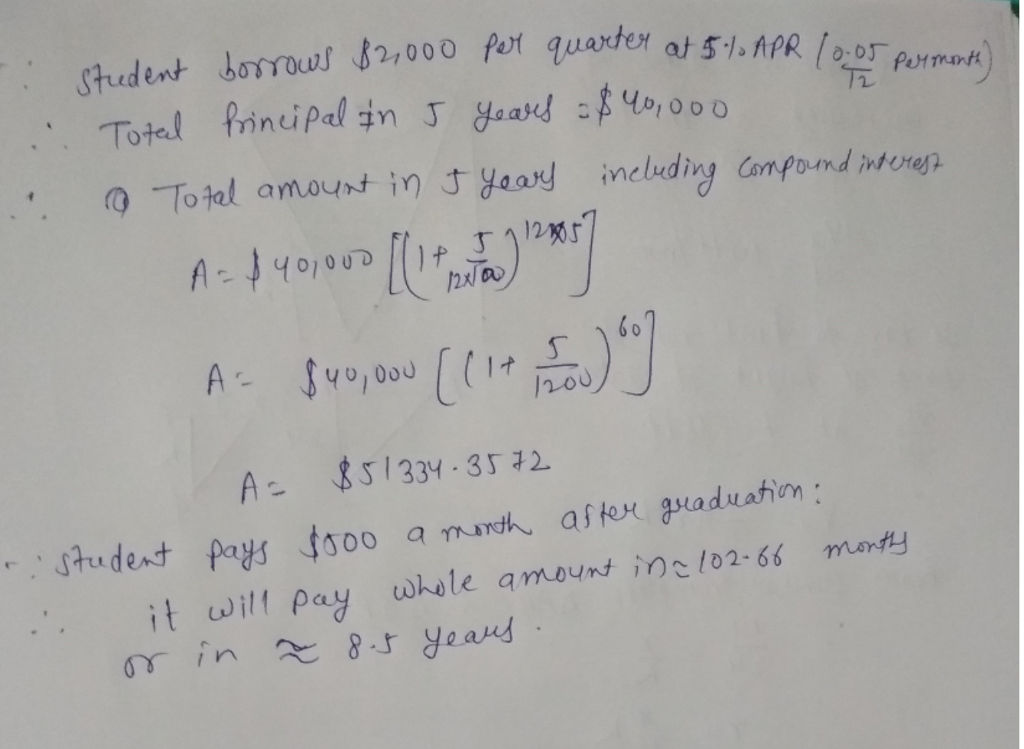 ∴ Student borrows $2,000 per quarter at 5% APR (0.05/12 per month)
∴ Total Principal in 5 years = $40,000
∴ Total amount in 5 years including compound interest
A = $40,000 [(1 + 5/12×100)^12×5]
A = $40,000 [(1 + 5/1200)^60]
A = $51334.3572
∵ Student pays $500 a month after graduation:
∴ it will pay whole amount in = 102.66 months
or in ≈ 8.5 years.